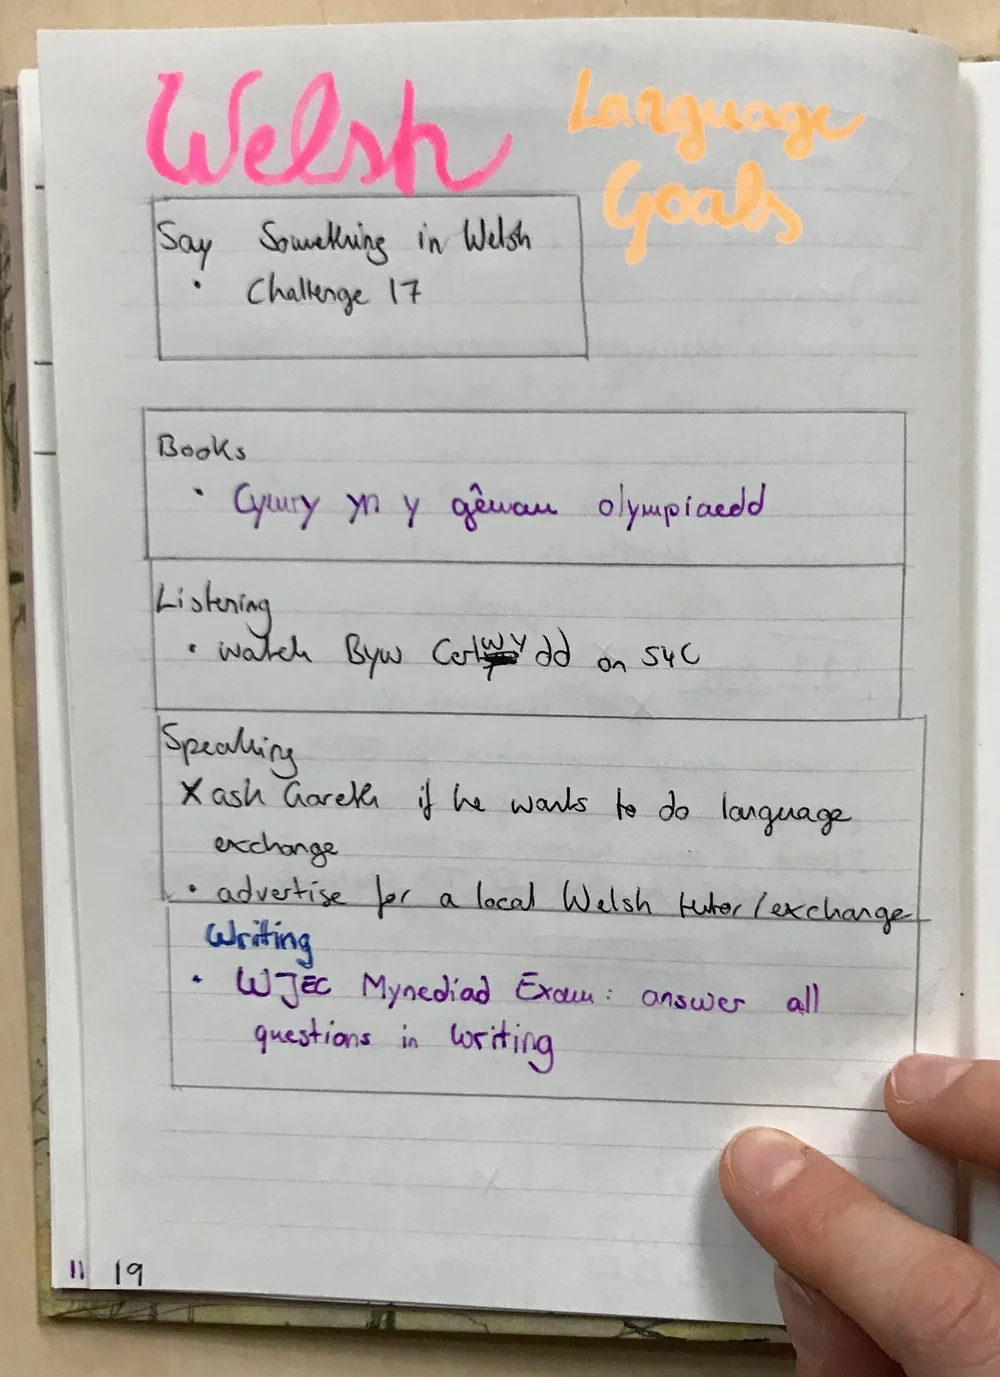 Welsh Language
Goals
Say Something in Welsh
• Challenge 17
Books
• Cymry yn y gêmau olympiaedd
Listening
• watch Byw Celwydd on S4C
Speaking
X ask Gareth if he wants to do language
exchange
• advertise for a local Welsh tutor/exchange
Writing
• WJEC Mynediad Exam: answer all
questions in writing
11 19